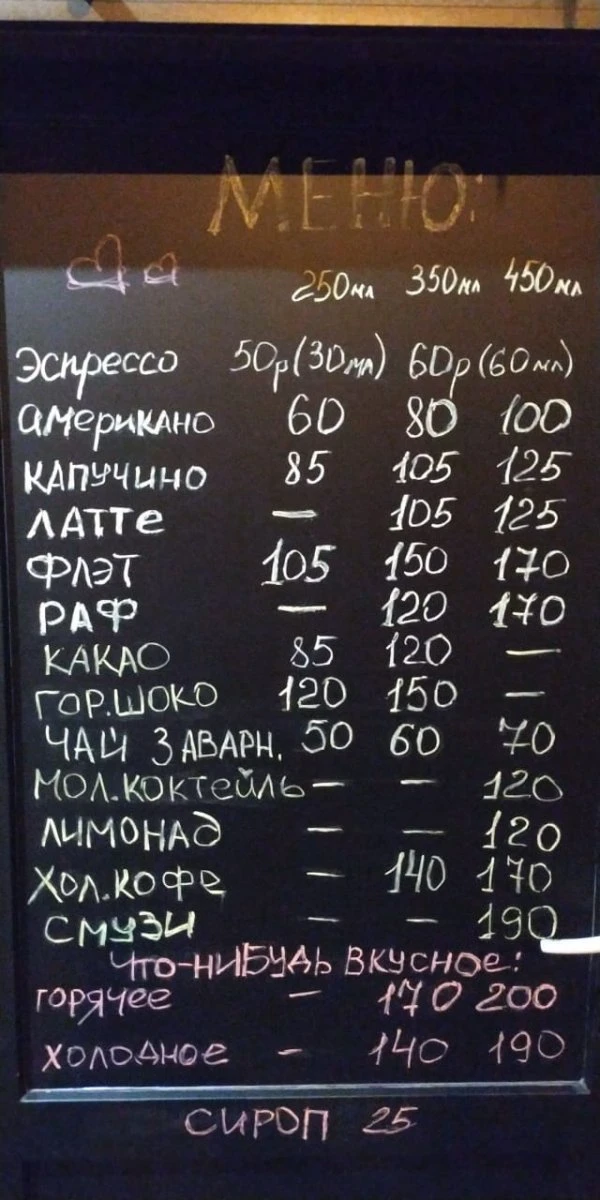 МЕНЮ:
250мл 350мл 450мл
Эспрессо 50р(30мл) 60р(60мл)
Американо 60 80 100
КАПУЧИНО 85 105 125
ЛАТТЕ — 105 125
ФЛЭТ 105 150 170
РАФ — 120 170
КАКАО 85 120 —
ГОР.ШОКО 120 150 —
ЧАЙ ЗАВАРН. 50 60 70
МОЛ.КОКТЕЙЛЬ — — 120
ЛИМОНАД — — 120
ХОЛ.КОФЕ — 140 170
СМУЗИ — — 190
ЧТО-НИБУДЬ ВКУСНОЕ:
ГОРЯЧЕЕ — 170 200
ХОЛОДНОЕ — 140 190
СИРОП 25